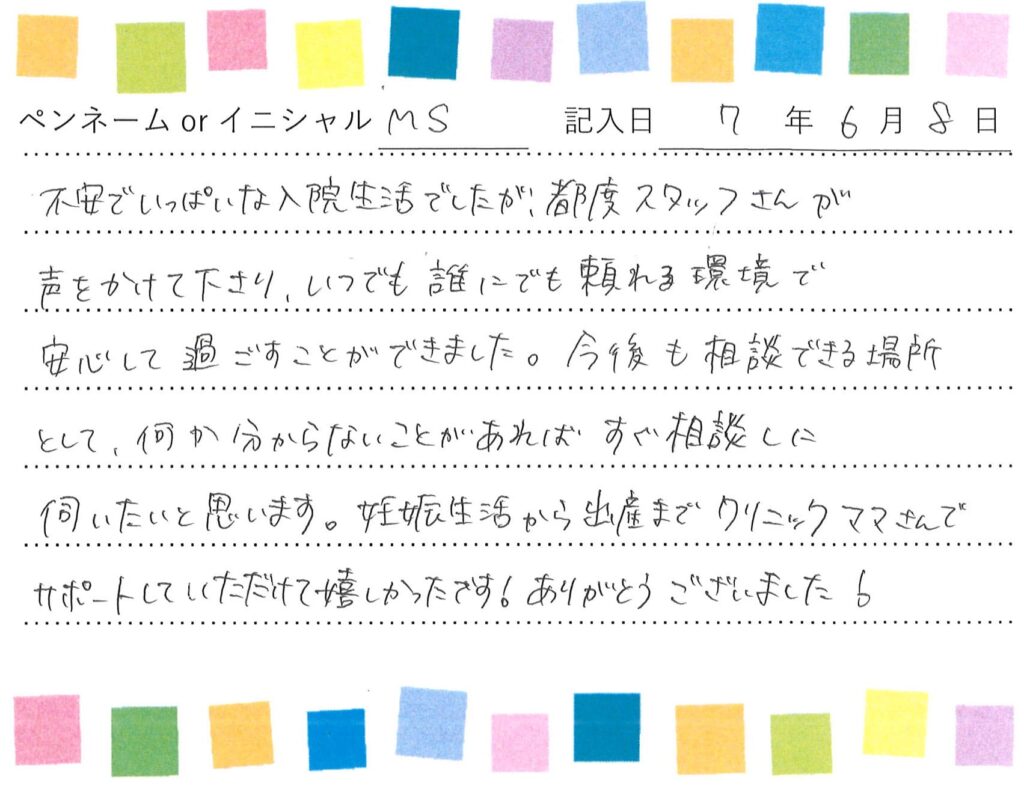 ペンネーム or イニシャル MS 記入日 7 年 6 月 8 日
不安でいっぱいな入院生活でしたが、都度スタッフさんが
声をかけて下さり、いつでも誰にでも頼れる環境で
安心して過ごすことができました。今後も相談できる場所
として、何か分からないことがあればすぐ相談しに
伺いたいと思います。妊娠生活から出産までクリニックママさんで
サポートしていただけて嬉しかったです!ありがとうございました!